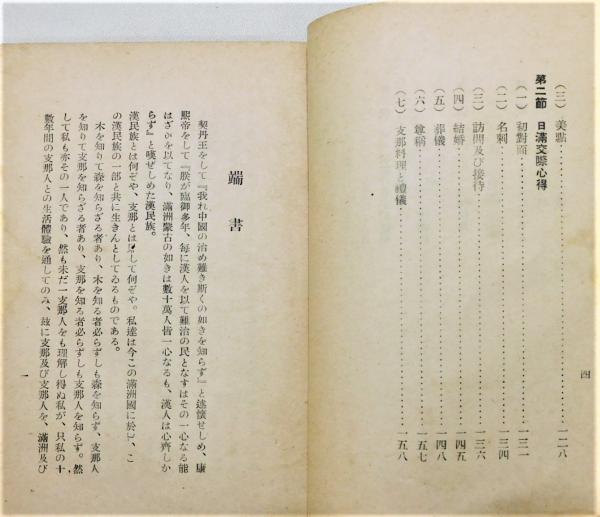 (三) 美點……一二八
第二節 日滿交際心得
(一) 初對面……一三一
(二) 名刺……一三四
(三) 訪問及び接待……一三六
(四) 結婚……一四五
(五) 葬儀……一四八
(六) 尊稱……一五七
(七) 支那料理と禮儀……一五八
四
端書
契丹王をして『我れ中國の治め難き斯くの如きを知らず』と述懷せしめ、康
熙帝をして『朕が臨御多年、每に漢人を以て難治の民となすはその一心なる能
はざるを以てなり、滿洲蒙古の如きは數十萬人皆一心なるも、漢人は心齊しか
らず』と嘆ぜしめた漢民族。
漢民族とは何ぞや、支那とは して何ぞや。私達は今この滿洲國に於て、こ
の漢民族の一部と共に生きんとしてゐるものである。
木を知りて森を知らざる者あり、木を知る者必らずしも森を知らず、支那人
を知りて支那を知らざる者あり、支那を知る者必らずしも支那人を知らず。然
して私も亦その一人であり、然も未だ一支那人をも理解し得ぬ私が、只私の十
數年間の支那人との生活體驗を通してのみ、玆に支那及び支那人を、滿洲及び
一